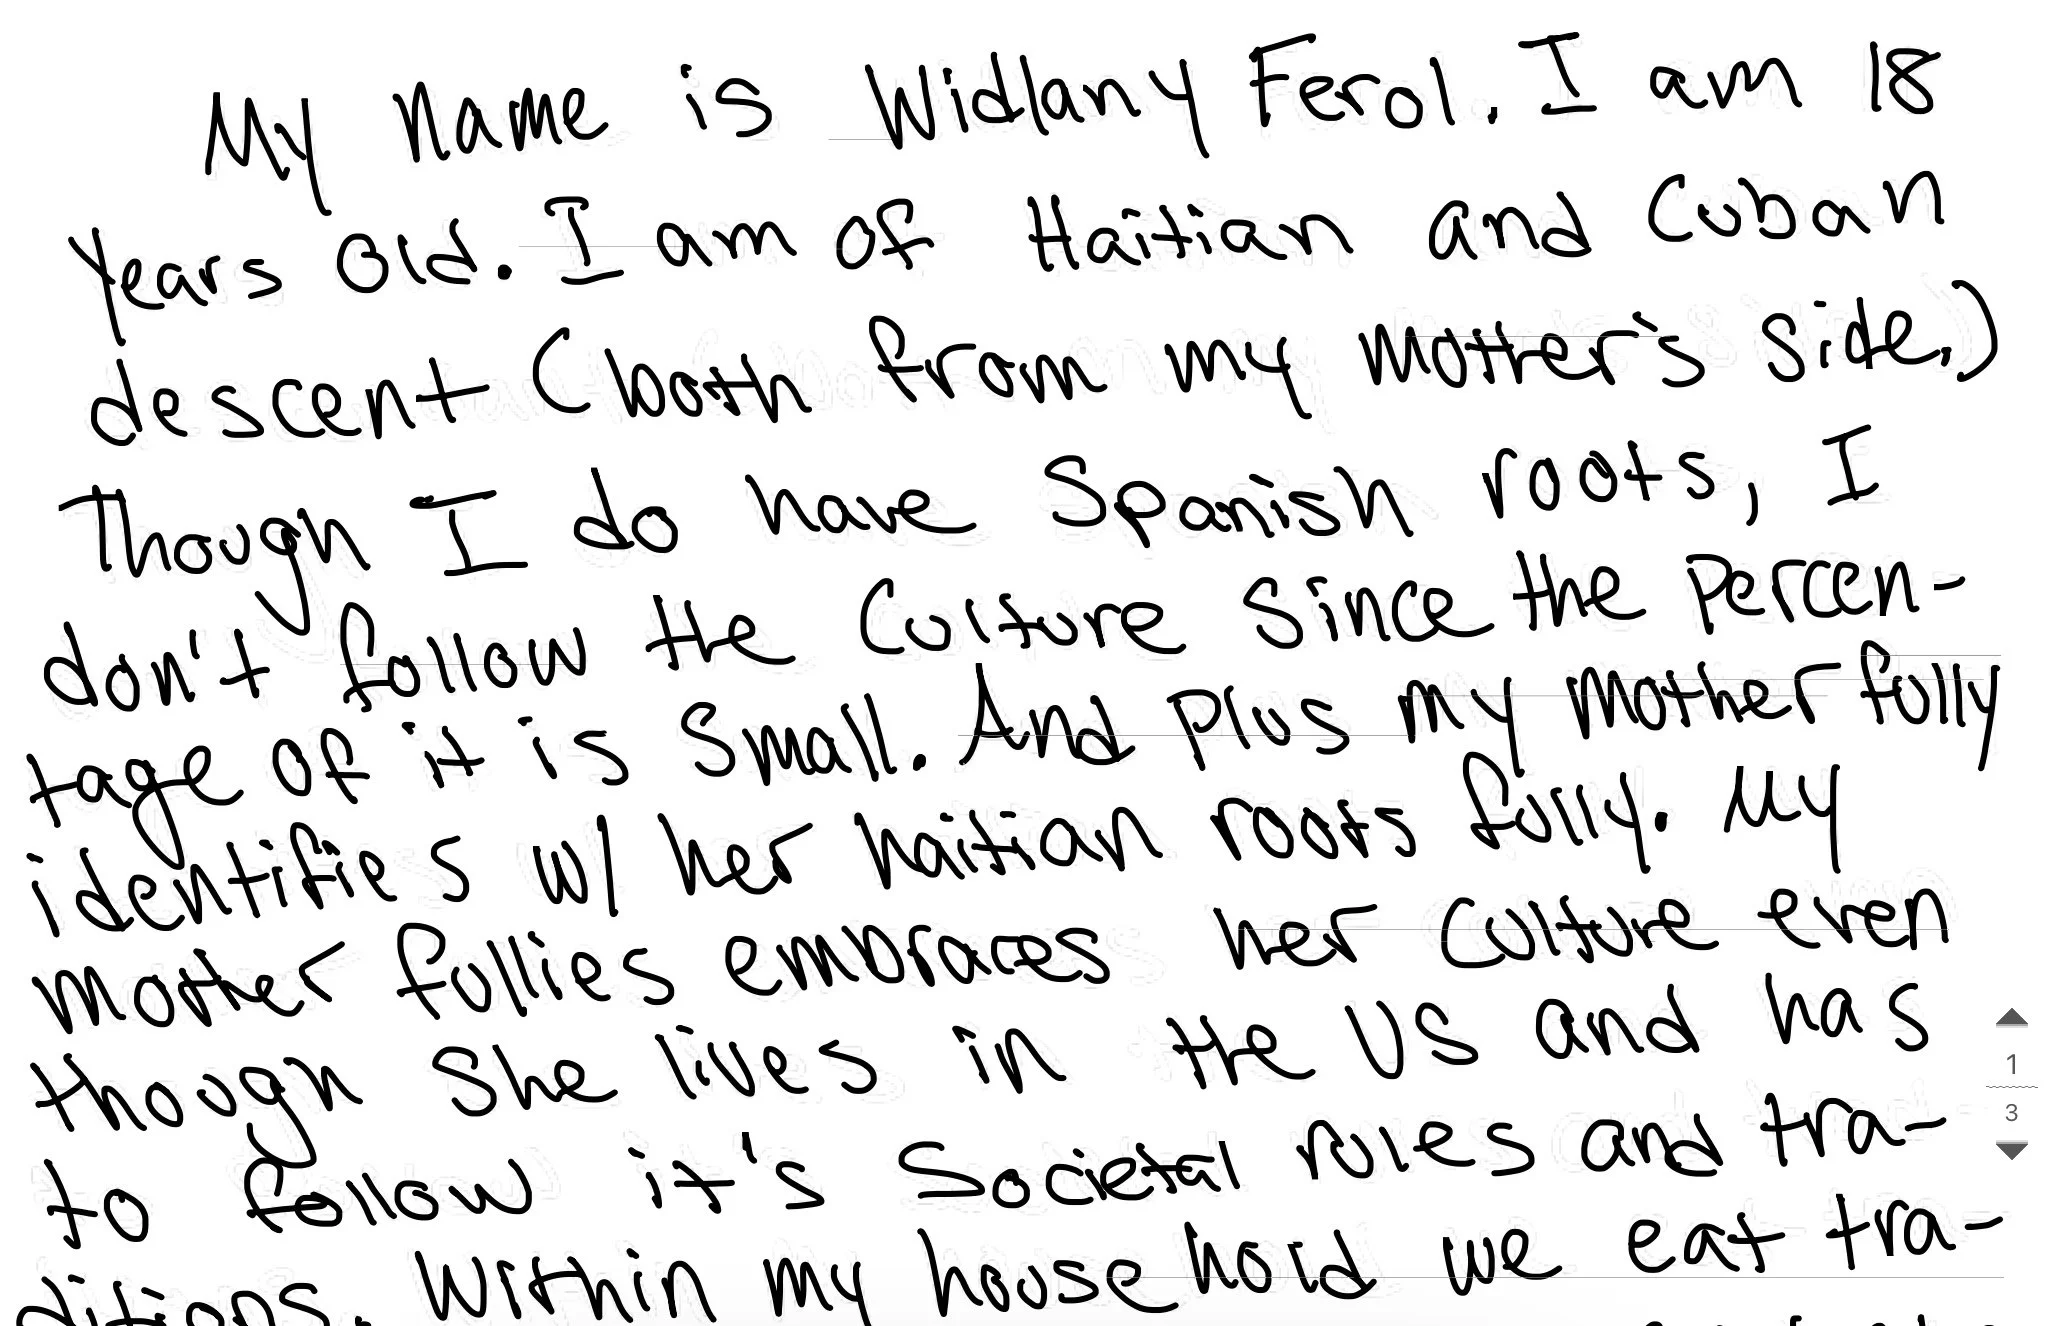 My name is Widlany Ferol. I am 18
years old. I am of Haitian and Cuban
descent (both from my mother's side.)
Though I do have Spanish roots, I
don't follow the culture since the percen-
tage of it is small. And plus my mother fully
identifies w/ her haitian roots fully. My
mother fullies embraces her culture even
though she lives in the US and has
1
3
to follow it's societal rules and tra-
ditions. Within my household we eat tra-